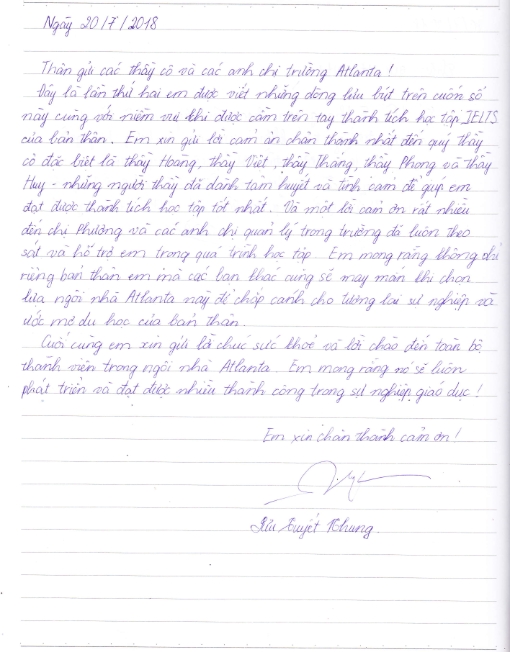 Ngày 20/7/2018
Thân gửi các thầy cô và các anh chị trường Atlanta!
Đây là lần thứ hai em được viết những dòng lưu bút trên cuốn sổ
này cùng với niềm vui khi được cầm trên tay thành tích học tập IELTS
của bản thân. Em xin gửi lời cảm ơn chân thành nhất đến quý thầy
cô đặc biệt là thầy Hoàng, thầy Việt, thầy Thăng, thầy Phong và thầy
Huy - những người thầy đã dành tâm huyết và tình cảm để giúp em
đạt được thành tích học tập tốt nhất. Và một lời cảm ơn rất nhiều
đến chị Phương và các anh chị quản lý trong trường đã luôn theo
sát và hỗ trợ em trong quá trình học tập. Em mong rằng không chỉ
riêng bản thân em mà các bạn khác cũng sẽ may mắn khi chọn
lựa ngôi nhà Atlanta này để chắp cánh cho tương lai sự nghiệp và
ước mơ du học của bản thân.
Cuối cùng em xin gửi lời chúc sức khoẻ và lời chào đến toàn bộ
thành viên trong ngôi nhà Atlanta. Em mong rằng nó sẽ luôn
phát triển và đạt được nhiều thành công trong sự nghiệp giáo dục!
Em xin chân thành cảm ơn!
Tuyết Nhung.